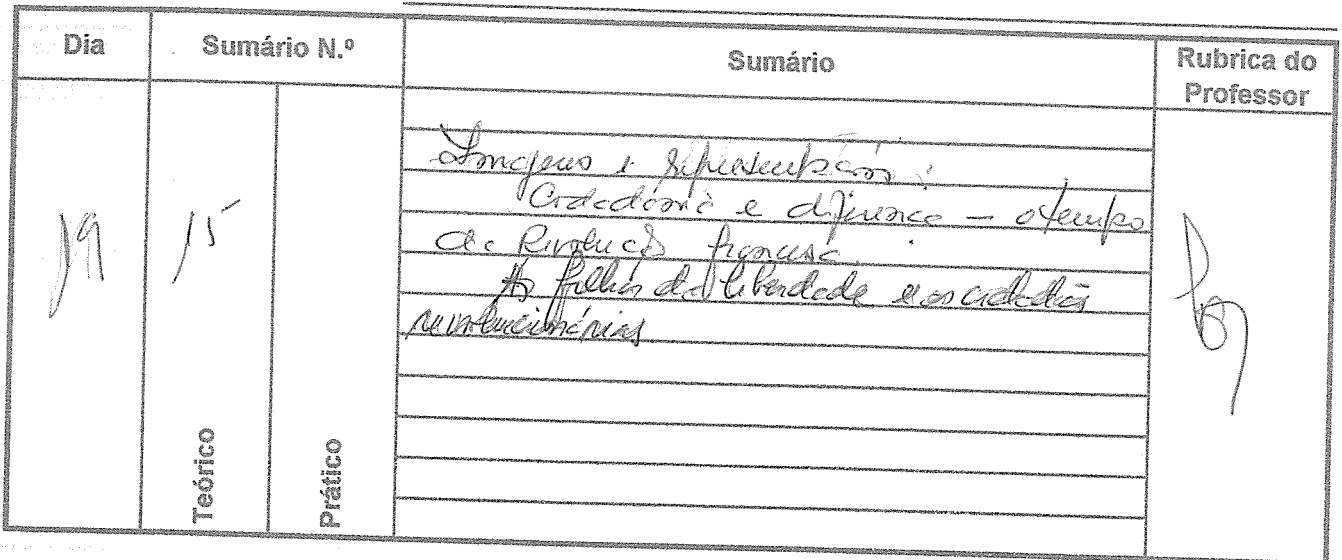 Dia
Sumário N.º
Sumário
Rubrica do
Professor
19
15
Imagens e representações:
Cidadania e diferença – o tempo
da Revolução francesa.
As filhas da liberdade e as cidadãs
revolucionárias
Teórico
Prático